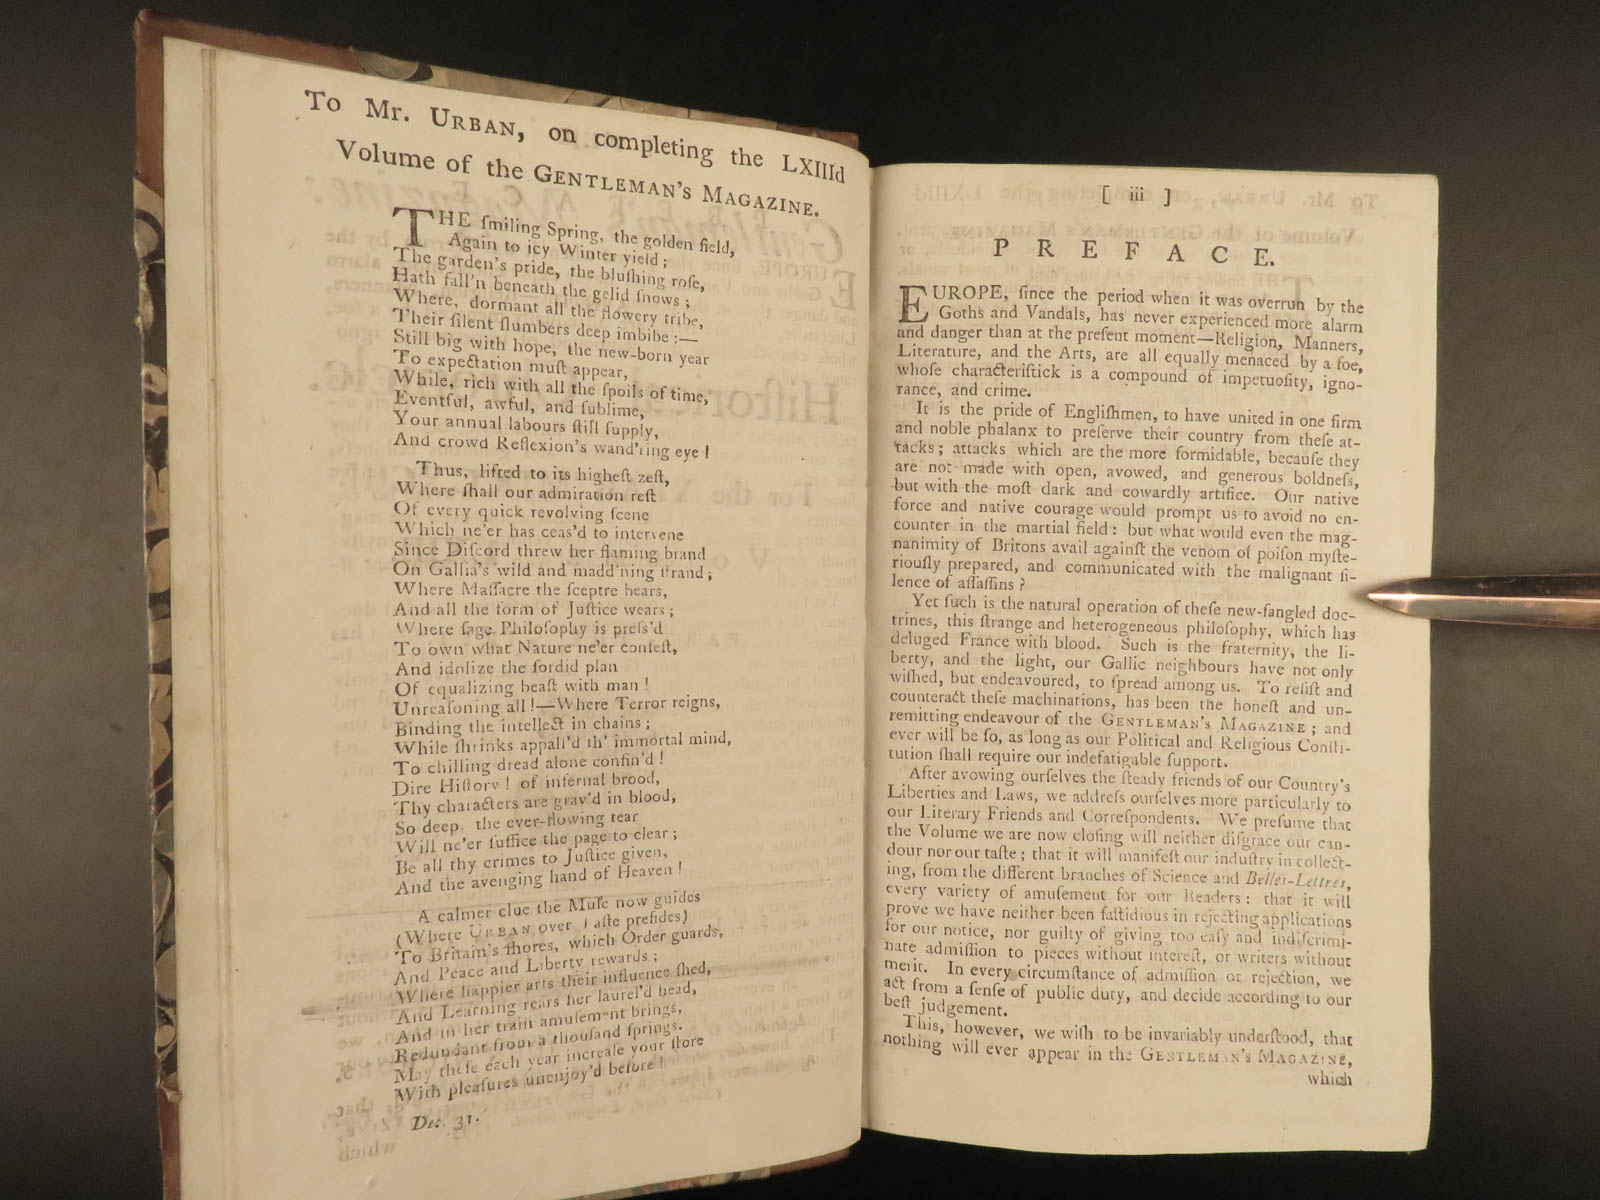 To Mr. URBAN, on completing the LXIIId
Volume of the GENTLEMAN'S MAGAZINE.
THE ſmiling Spring, the golden field,
Again to icy Winter yield;
The garden's pride, the bluſhing roſe,
Hath fall'n beneath the gelid ſnows;
Where, dormant all the flowery tribe,
Their ſilent ſlumbers deep imbibe:—
Still big with hope, the new-born year
To expectation muſt appear,
While, rich with all the ſpoils of time,
Eventful, awful, and ſublime,
Your annual labours ſtill ſupply,
And crowd Reflexion's wand'ring eye!
Thus, lifted to its higheſt zeſt,
Where ſhall our admiration reſt
Of every quick revolving ſcene
Which ne'er has ceas'd to intervene
Since Diſcord threw her flaming brand
On Gallia's wild and madd'ning ſtrand;
Where Maſſacre the ſceptre bears,
And all the form of Juſtice wears;
Where ſage Philoſophy is preſs'd
To own what Nature ne'er confeſt,
And idolize the ſordid plan
Of equalizing beaſt with man!
Unreaſoning all!—Where Terror reigns,
Binding the intellect in chains;
While ſhrinks appall'd th' immortal mind,
To chilling dread alone confin'd!
Dire Hiſtory! of infernal brood,
Thy characters are grav'd in blood,
So deep, the ever-flowing tear
Will ne'er ſuffice the page to clear;
Be all thy crimes to Juſtice given,
And the avenging hand of Heaven!
A calmer clue the Muſe now guides
(Where URBAN over Taſte preſides)
To Britain's ſhores, which Order guards,
And Peace and Liberty rewards;
Where happier arts their influence ſhed,
And Learning rears her laurel'd head,
And in her train amuſement brings,
Redundant from a thouſand ſprings.
May theſe each year increaſe your ſtore
With pleaſures unenjoy'd before!
Dec. 31.
[ iii ]
PREFACE.
EUROPE, ſince the period when it was overrun by the
Goths and Vandals, has never experienced more alarm
and danger than at the preſent moment—Religion, Manners,
Literature, and the Arts, are all equally menaced by a foe,
whoſe characteriſtick is a compound of impetuoſity, igno-
rance, and crime.
It is the pride of Engliſhmen, to have united in one firm
and noble phalanx to preſerve their country from theſe at-
tacks; attacks which are the more formidable, becauſe they
are not made with open, avowed, and generous boldneſs,
but with the moſt dark and cowardly artifice. Our native
force and native courage would prompt us to avoid no en-
counter in the martial field: but what would even the mag-
nanimity of Britons avail againſt the venom of poiſon myſte-
riouſly prepared, and communicated with the malignant ſi-
lence of aſſaſſins?
Yet ſuch is the natural operation of theſe new-fangled doc-
trines, this ſtrange and heterogeneous philoſophy, which has
deluged France with blood. Such is the fraternity, the li-
berty, and the light, our Gallic neighbours have not only
wiſhed, but endeavoured, to ſpread among us. To reſiſt and
counteract theſe machinations, has been the honeſt and un-
remitting endeavour of the GENTLEMAN'S MAGAZINE; and
ever will be ſo, as long as our Political and Religious Conſti-
tution ſhall require our indefatigable ſupport.
After avowing ourſelves the ſteady friends of our Country's
Liberties and Laws, we addreſs ourſelves more particularly to
our Literary Friends and Correſpondents. We preſume that
the Volume we are now cloſing will neither diſgrace our can-
dour nor our taſte; that it will manifeſt our induſtry in collect-
ing, from the different branches of Science and Belles-Lettres,
every variety of amuſement for our Readers: that it will
prove we have neither been faſtidious in rejecting applications
for our notice, nor guilty of giving too eaſy and indiſcrimi-
nate admiſſion to pieces without intereſt, or writers without
merit. In every circumſtance of admiſſion or rejection, we
act from a ſenſe of public duty, and decide according to our
beſt judgement.
This, however, we wiſh to be invariably underſtood, that
nothing will ever appear in the GENTLEMAN'S MAGAZINE,
which